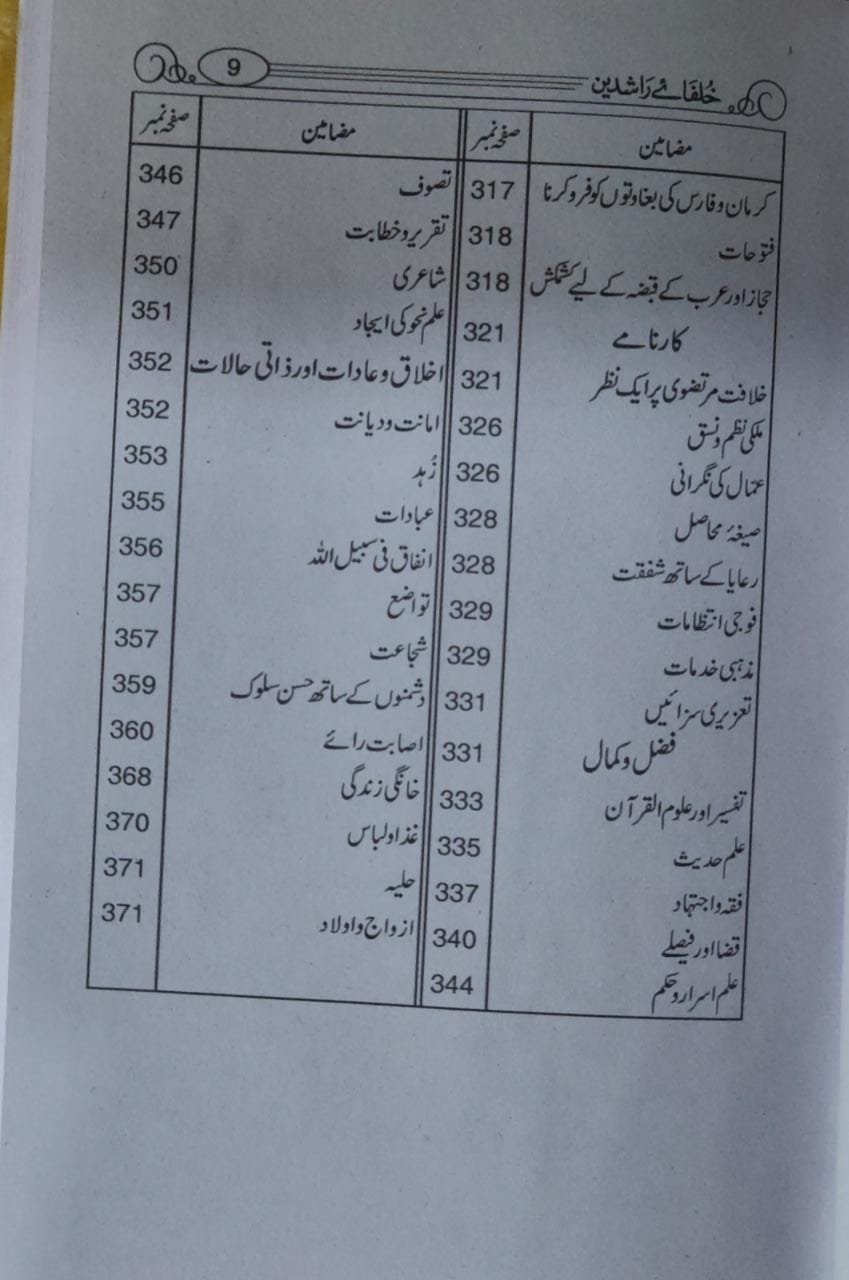 خُلفَائے رَاشدین 9
مضامین صفحہ نمبر
کرمان و فارس کی بغاوتوں کو فرو کرنا 317
فتوحات 318
حجاز اور عرب کے قبضہ کے لیے کشمکش 318
کارنامے 321
خلافت مرتضوی پر ایک نظر 321
ملکی نظم و نسق 326
عمال کی نگرانی 326
صیغۂ محاصل 328
رعایا کے ساتھ شفقت 328
فوجی انتظامات 329
مذہبی خدمات 329
تعزیری سزائیں 331
فضل و کمال 331
تفسیر اور علوم القرآن 333
علم حدیث 335
فقہ و اجتہاد 337
قضا اور فیصلے 340
علم اسرار و حکم 344
مضامین صفحہ نمبر
تصوف 346
تقریر و خطابت 347
شاعری 350
علم نحو کی ایجاد 351
اخلاق و عادات اور ذاتی حالات 352
امانت و دیانت 352
زُہد 353
عبادات 355
انفاق فی سبیل اللہ 356
تواضع 357
شجاعت 357
دشمنوں کے ساتھ حسن سلوک 359
اصابت رائے 360
خانگی زندگی 368
غذا و لباس 370
حلیہ 371
ازواج و اولاد 371